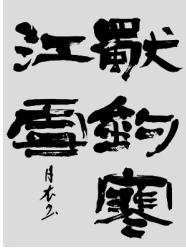 獨釣寒
江雪